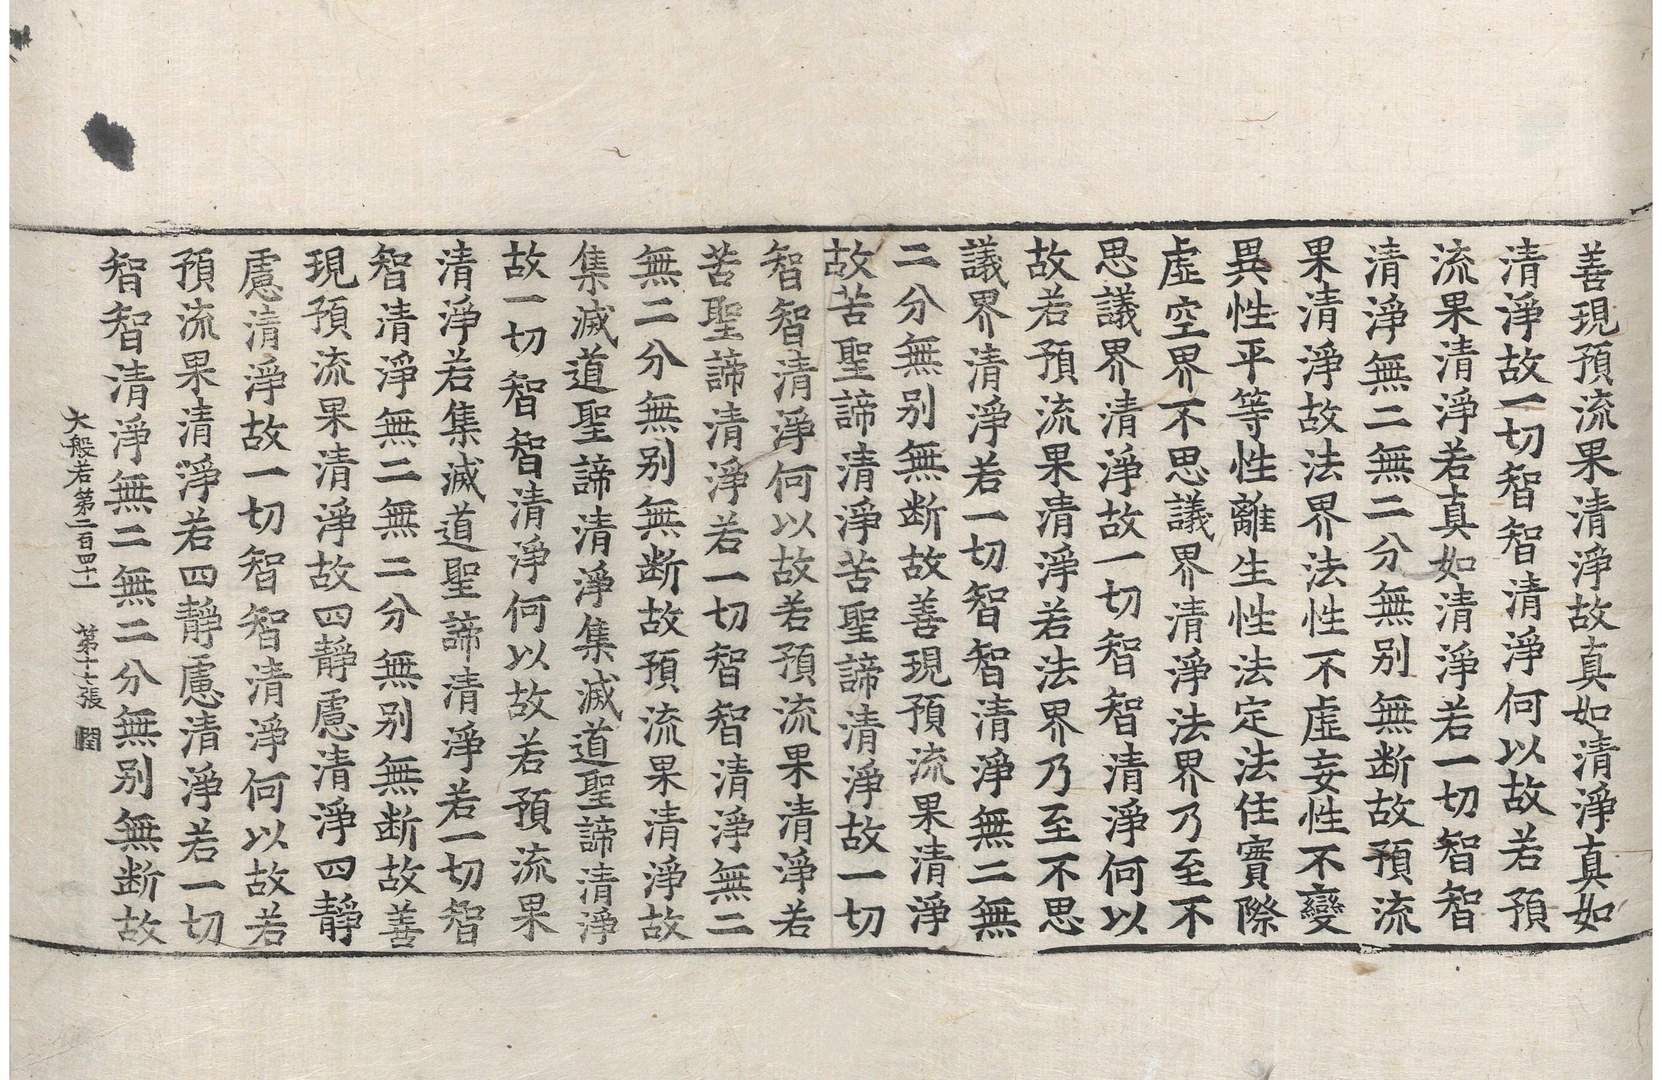 善現預流果清淨故真如清淨真如
清淨故一切智智清淨何以故若預
流果清淨若真如清淨若一切智智
清淨無二無二分無别無断故預流
果清淨故法界法性不虛妄性不變
異性平等性離生性法定法住實際
虛空界不思議界清淨法界乃至不
思議界清淨故一切智智清淨何以
故若預流果清淨若法界乃至不思
議界清淨若一切智智清淨無二無
二分無别無断故善現預流果清淨
故苦聖諦清淨苦聖諦清淨故一切
智智清淨何以故若預流果清淨若
苦聖諦清淨若一切智智清淨無二
無二分無别無断故預流果清淨故
集滅道聖諦清淨集滅道聖諦清淨
故一切智智清淨何以故若預流果
清淨若集滅道聖諦清淨若一切智
智清淨無二無二分無别無断故善
現預流果清淨故四靜慮清淨四靜
慮清淨故一切智智清淨何以故若
預流果清淨若四靜慮清淨若一切
智智清淨無二無二分無别無断故
大般若第二百四十一 第十七張 閏